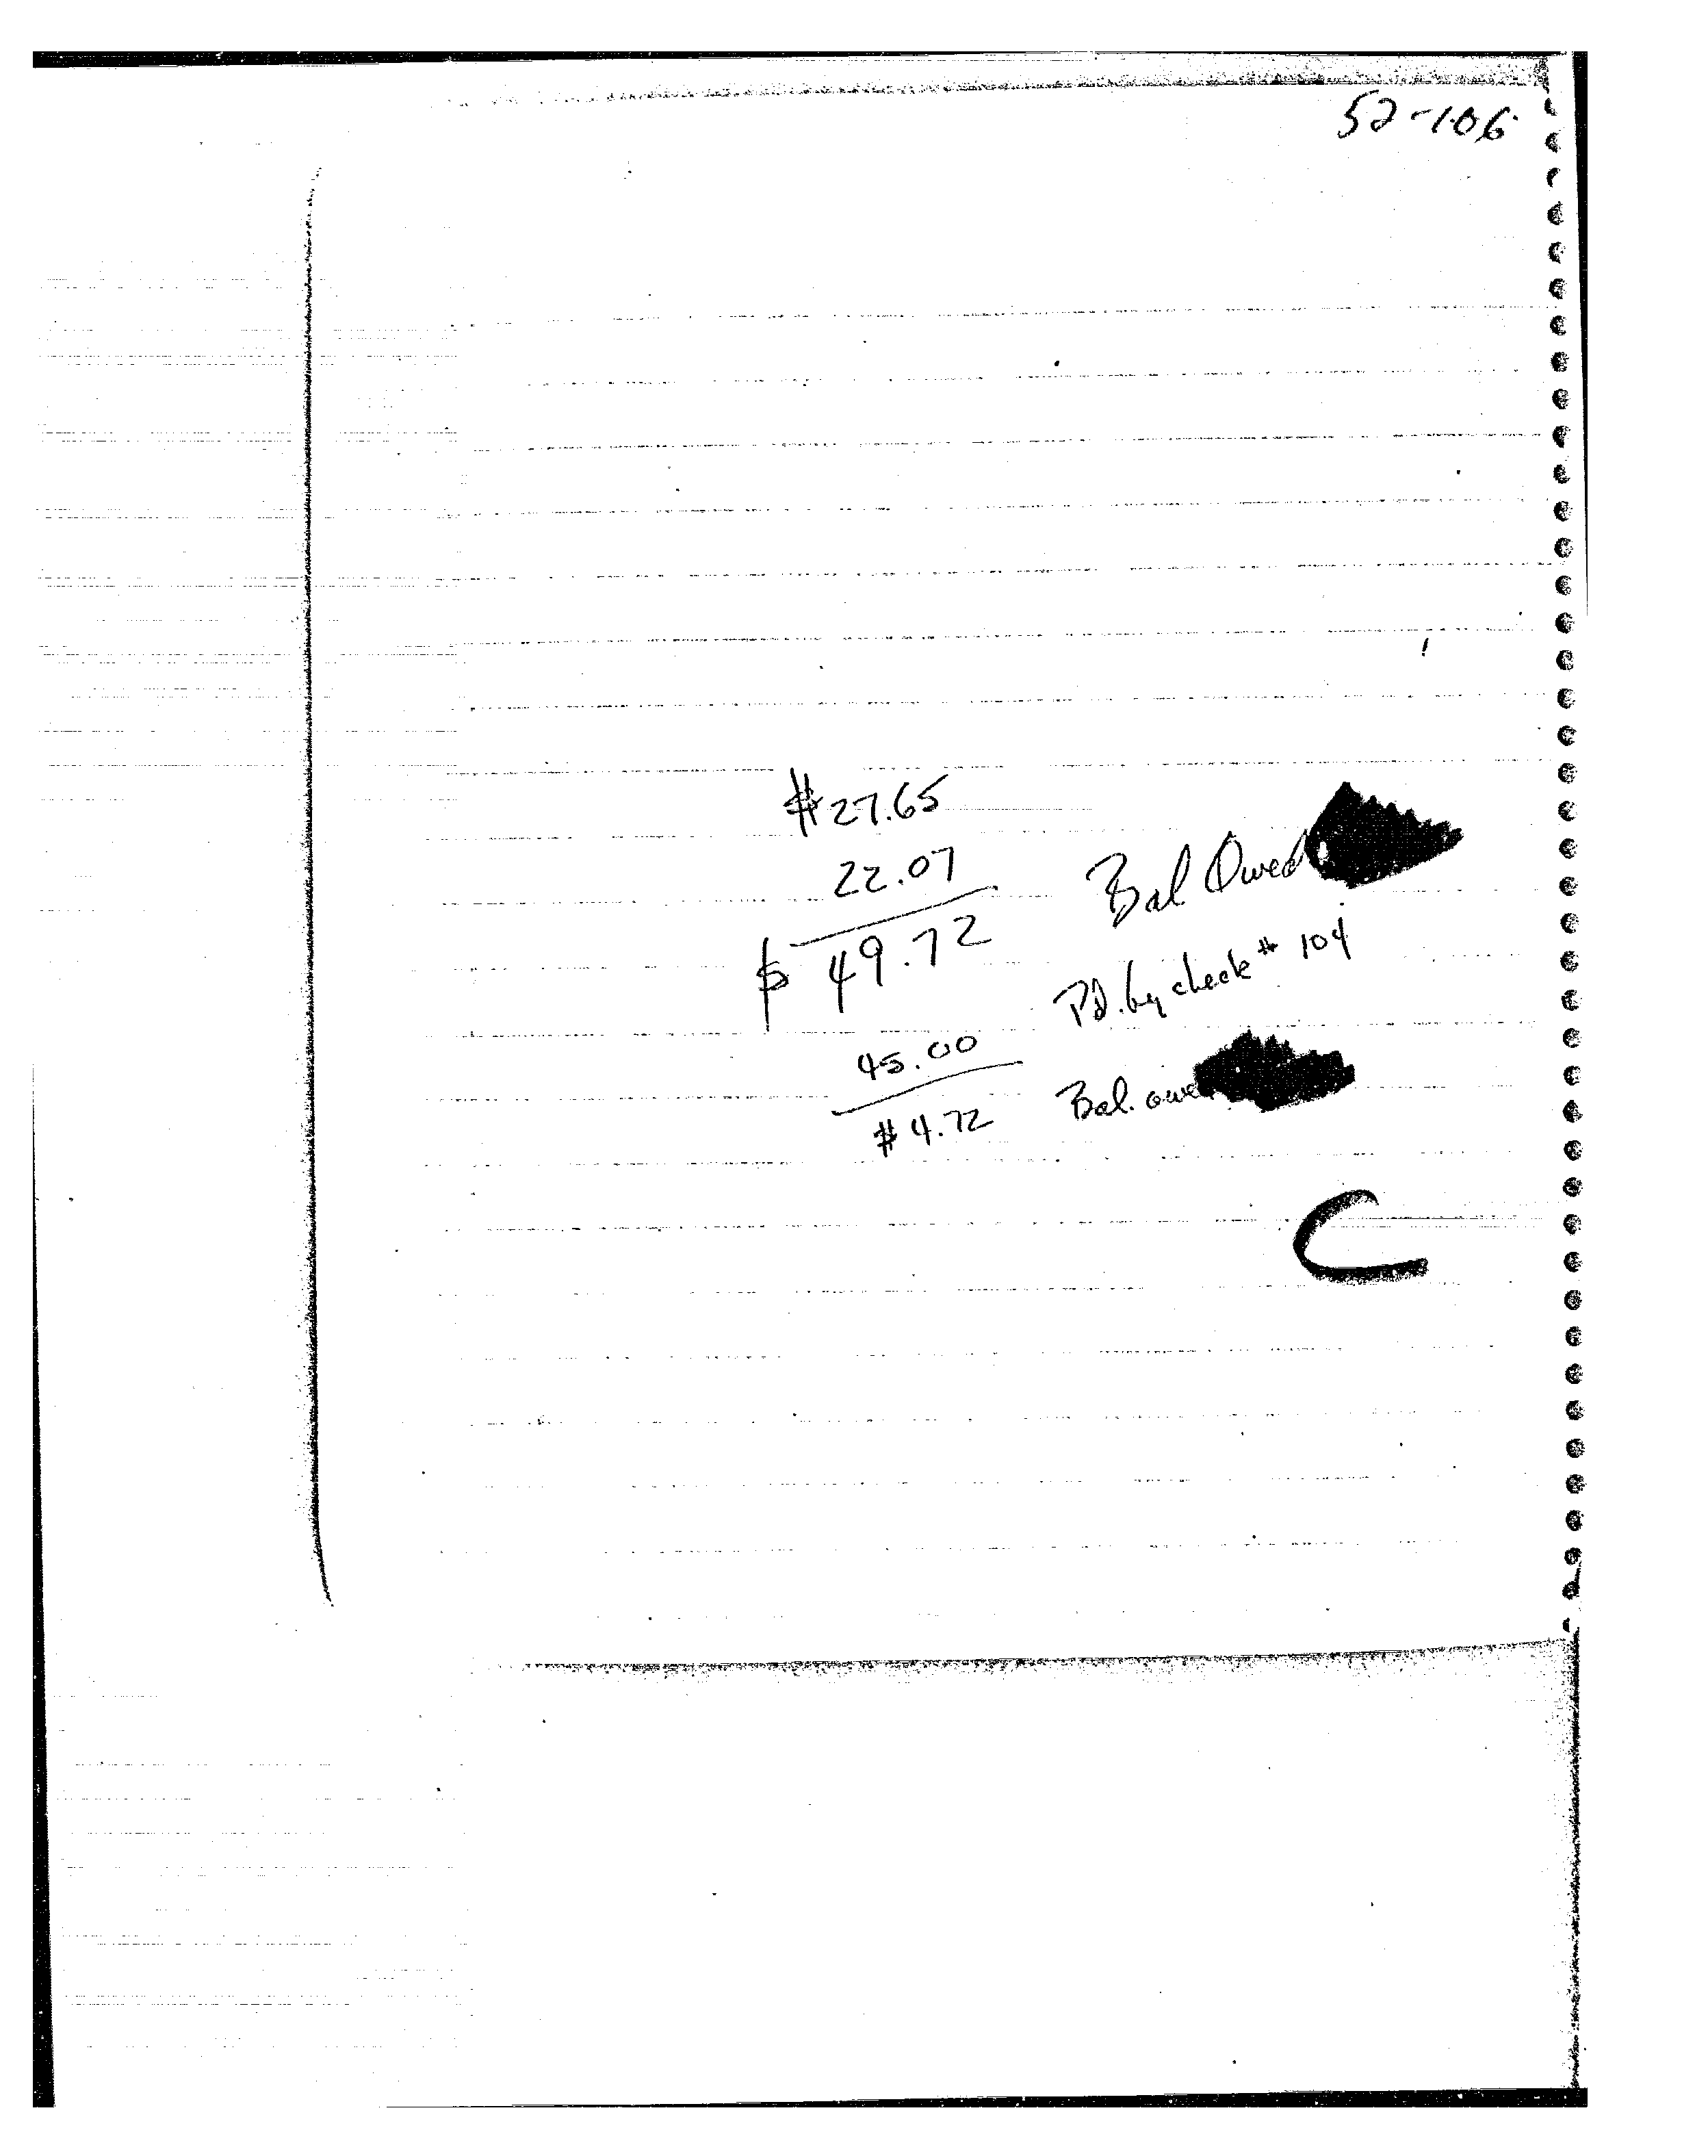 52-106
$27.65
22.07 Bal Owed
$ 49.72
Pd. by check # 104
45.00
$4.72 Bal. owe
C